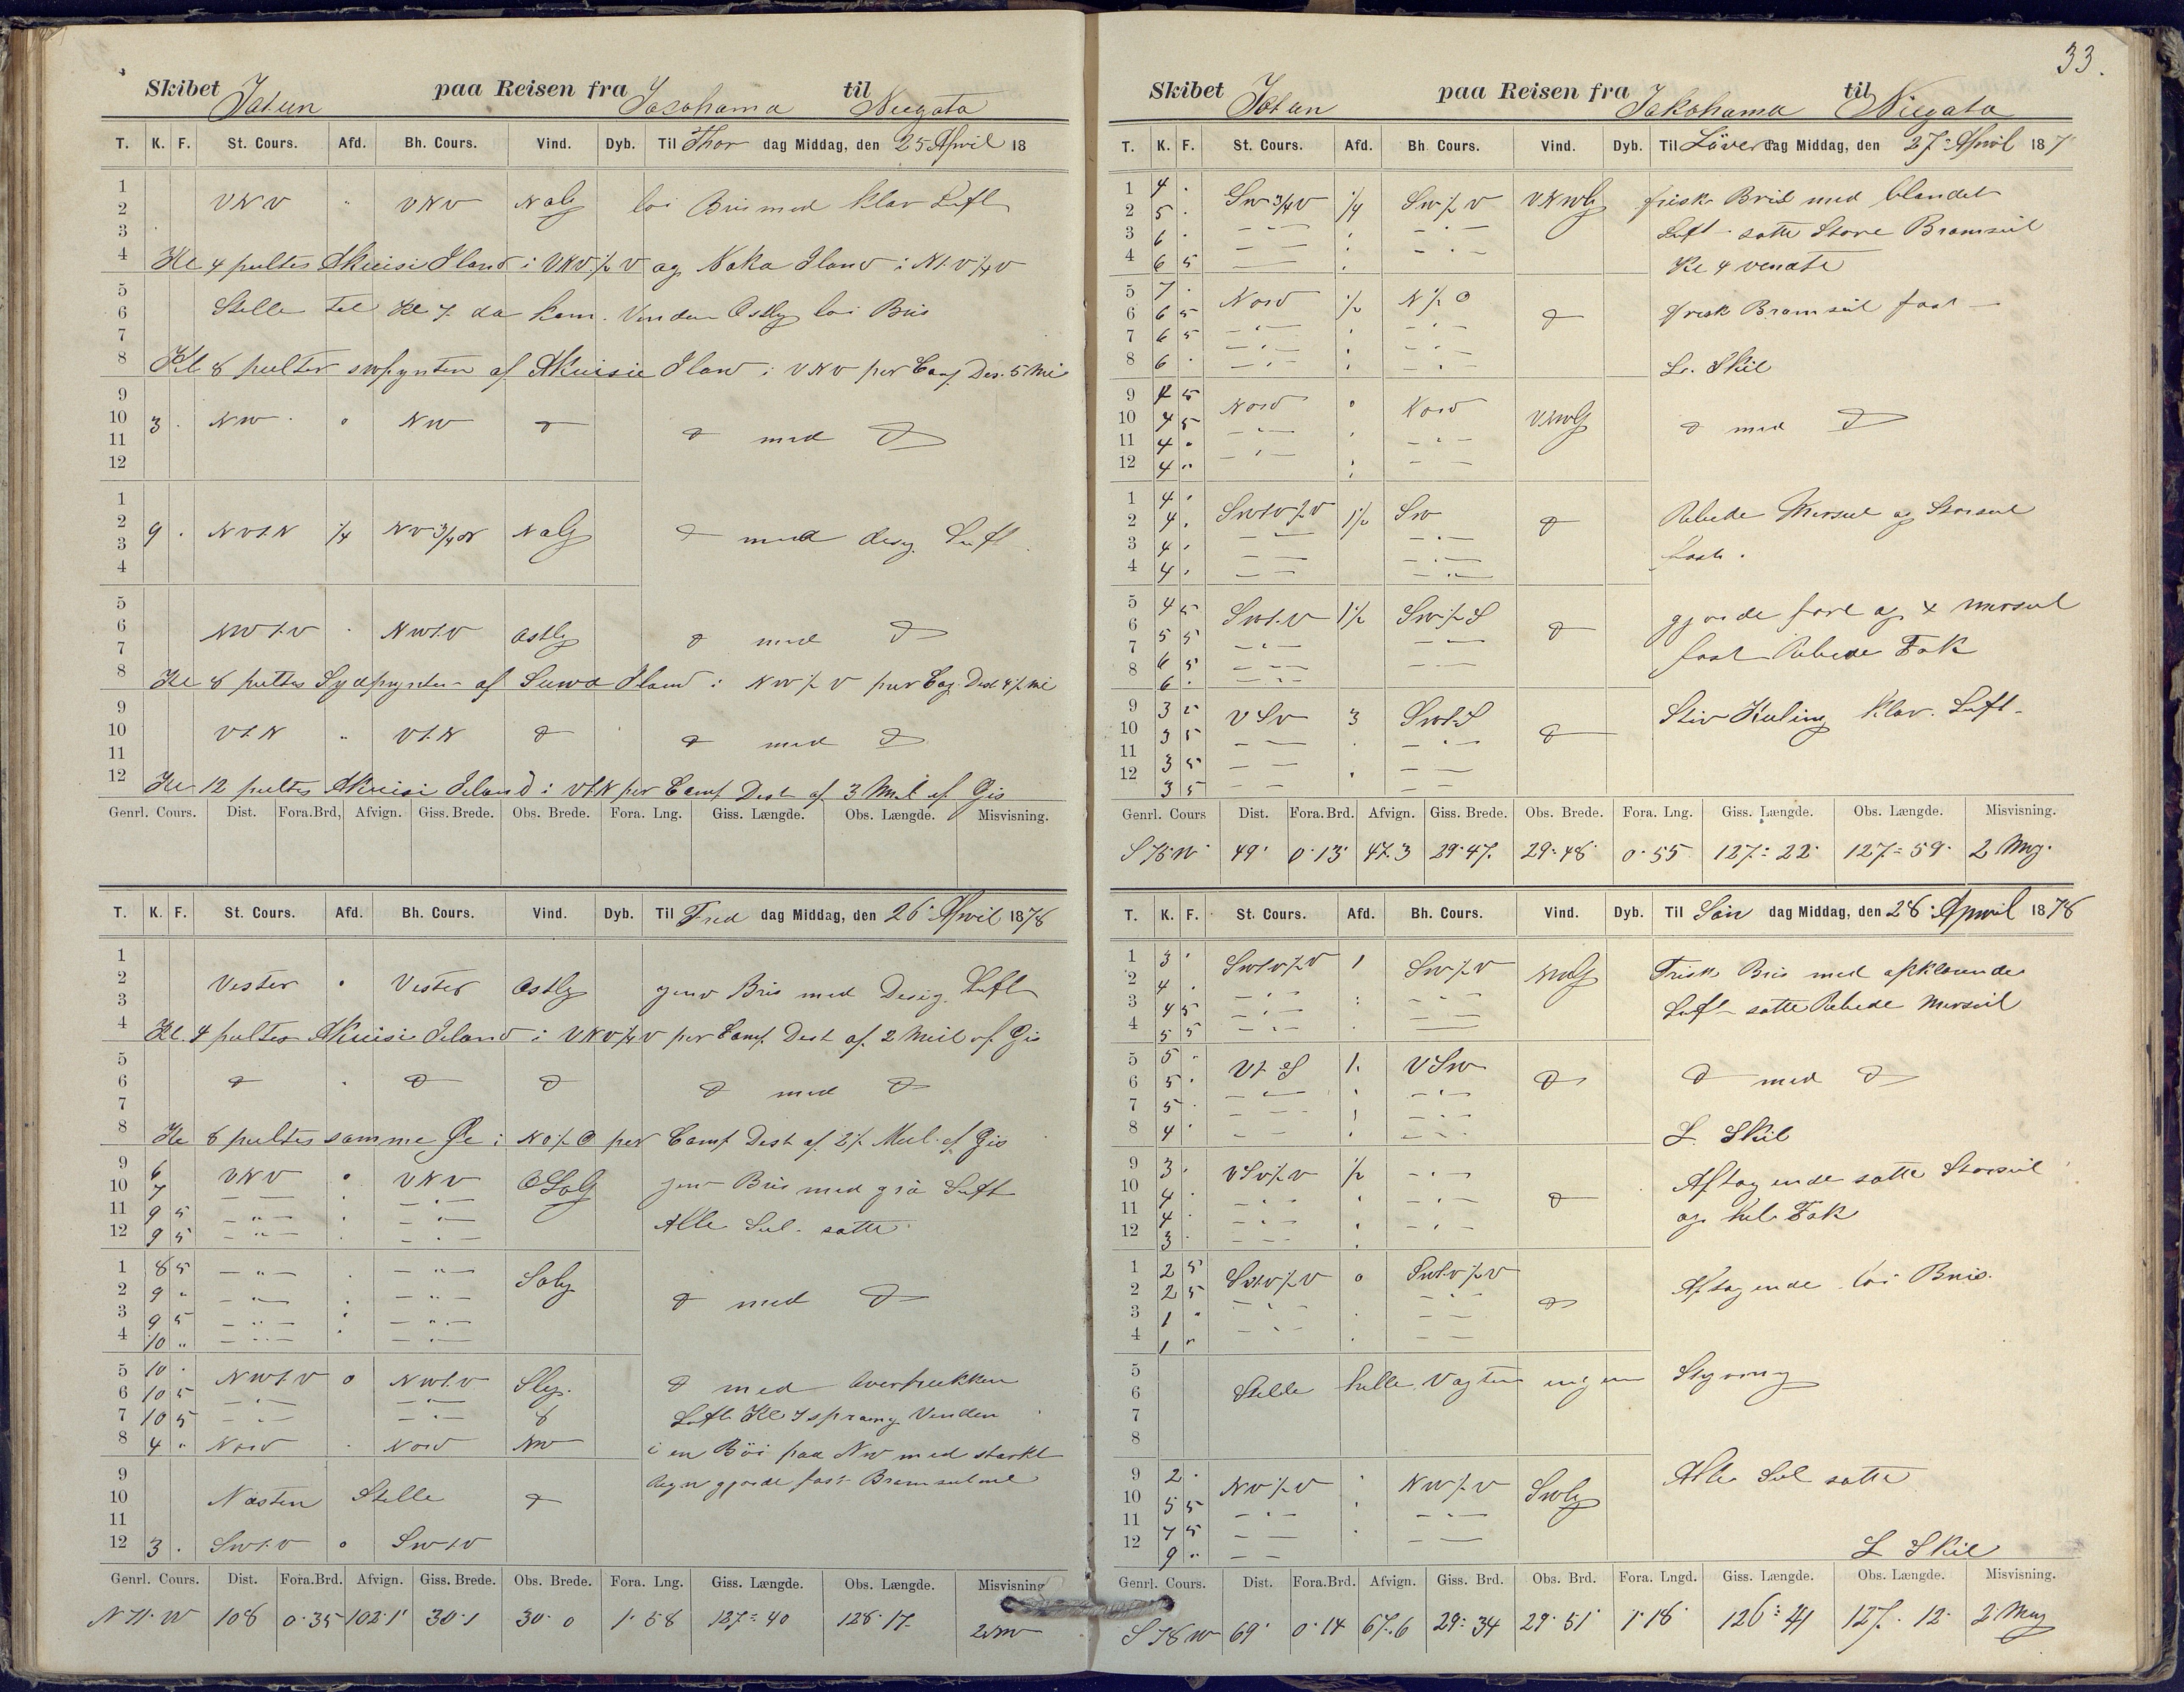 Skibet Jotun paa Reisen fra Jocohama til Niegata
T. K. F. St. Cours. Afd. Bh. Cours. Vind. Dyb. Til Thor dag Middag, den 25 April 18
1
2 VNV " VNV NOlg loi Bris med klar Luft
3
4 Kl 4 peiltes Iland i VNV½V og Iland i
5
6 Stille til Kl 7 da kom Vinden Ostlig loi Bris
7
8 Kl 8 peiltes af Iland i VNV per Comp Des. 5 Mi
9
10 3 . NW . o NW d d med d
11
12
1
2 9 . NVtN ¼ NV¾N NOlg d med desig Luft
3
4
5
6 NWtV . NWtV Ostlig d med d
7
8 Kl 8 peiltes Sydpynten af Suwa Iland i NW½V per
9
10 VtN " VtN d d med d
11
12 Kl 12 peiltes Iland i VtN per Comp Dest af 3 Mil ef Gis
Genrl. Cours. Dist. Fora.Brd, Afvign. Giss. Brede. Obs. Brede. Fora. Lng. Giss. Længde. Obs. Længde. Misvisning.
T. K. F. St. Cours. Afd. Bh. Cours. Vind. Dyb. Til Fred dag Middag, den 26 April 1878
1
2 Vester . Vester Ostlig jevn Bris med Desig Luft
3
4 Kl. 4 peiltes Iland i VNV¼V per Comp Dest af 2 Meil ef Gis
5
6 d . d d d med d
7
8 Kl 8 peiltes samme Øe i NO½O per Comp Dest af 2½ Mil ef Gis
9 6 VNV o VNV OSOlg jevn Bris med grå Luft
10 7
11 9 5 Alle Seil satte
12 9 5
1 8 5 SOlg
2 9 " d med d
3 9 5
4 10 "
5 10 . NWtV o NWtV Slig d med overtrukken
6 10 5
7 10 5 d Luft Kl 7 sprang Vinden
8 4 " Nord . Nord NW i en Böi paa NW med starkt
9 Regn gjorde fast Bramseilene
10 Næsten Stille d
11
12 3 . SWtV o SWtV
Genrl. Cours. Dist. Fora.Brd. Afvign. Giss. Brede. Obs. Brede. Fora. Lng. Giss. Længde. Obs. Længde. Misvisning
N 71 W 108 0·35 102·1 30·1 30·0 1·58 127=40 128·17
33.
Skibet Jotun paa Reisen fra Jakohama til Niegata
T. K. F. St. Cours. Afd. Bh. Cours. Vind. Dyb. Til Löver dag Middag, den 27 April 187
1 4 . SW¾V ¼ SW½V VNWlg frisk Bris med blandet
2 5 .
3 6 . Luft satte Store Bramseil
4 6 5 Kl 4 vendte
5 7 . Nord ½ N½O
6 6 5 d frisk Bramseil fast
7 6 5
8 6 . L. Skil
9 4 5 Nord o Nord
10 4 5 VNWlg d med d
11 4 "
12 4 "
1 4 . SWtV½V 1½ SW
2 4 . d Rebede Merseil og Storseil
3 4 . fast.
4 4 .
5 4 5 SWtV 1½ SW½S gjorde fore og x merseil
6 5 5 d
7 6 5 fast Rebede Fok
8 6 .
9 3 5 VSV 3 SWtS Stiv Kuling klar Luft
10 3 5 d
11 3 5
12 3 5
Genrl. Cours Dist. Fora.Brd. Afvign. Giss. Brede. Obs. Brede. Fora. Lng. Giss. Længde. Obs. Længde. Misvisning.
S 75 W 49 0·13 47.3 29·47 29·48 0·55 127=22 127=59
T. K. F. St. Cours. Afd. Bh. Cours. Vind. Dyb. Til Sön dag Middag, den 28 April 1878
1 3 . SWtV½V 1 SW½V NWlg Frisk Bris med opklarende
2 4 .
3 4 5 Luft satte Rebede Merseil
4 5 5
5 5 . VtS 1. VSW
6 5 . d d med d
7 5 .
8 4 . L. Skil
9 3 . VSV½V ½ Aftagende satte Storseil
10 4 . d
11 4 . og hel Fok
12 3 .
1 2 5 SWtV½V o SWtV½V
2 2 5 d Aftagende loi Bris.
3 1 "
4 1 "
5
6 Stille helle Vagten ingen Styring
7
8
9 2 . NV½V . NW½V SWlg Alle Seil satte
10 5 5
11 7 5
12 9 " L Skil
Genrl. Cours. Dist. Fora.Brd. Afvign. Giss. Brd. Obs. Brd. Fora. Lngd. Giss. Længde. Obs. Længde. Misvisning.
S 78 W 69 0·14 67.6 29=34 29·51 1·18 126=41 127·12